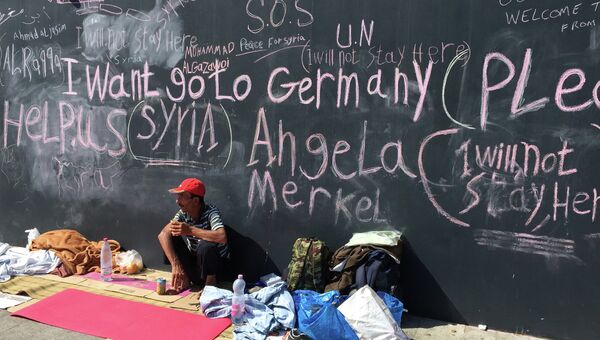 S.O.S
WELCOME T
FROM
Ahmad al jasim
I will not stay Here
MUHAMMAD
ALGAZAWOI
Peace For syria
U.N
(I will not stay Here)
AL Raqqa
I want go to Germany (PLe
HeLP.US
(SYRIA)
Angela
Merkel
(I will not
stay Here